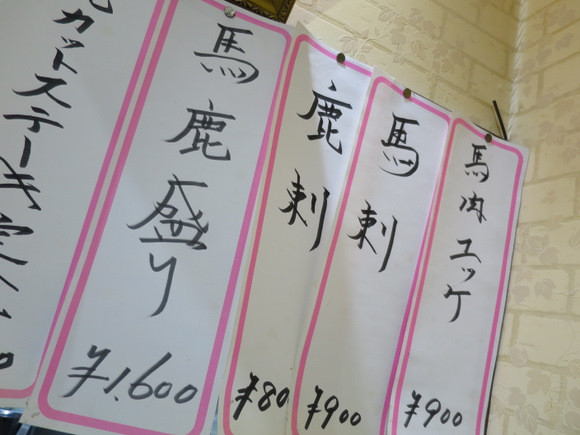 カットステーキ定
馬鹿盛り
¥1.600
鹿刺
¥80
馬刺
¥900
馬肉ユッケ
¥900